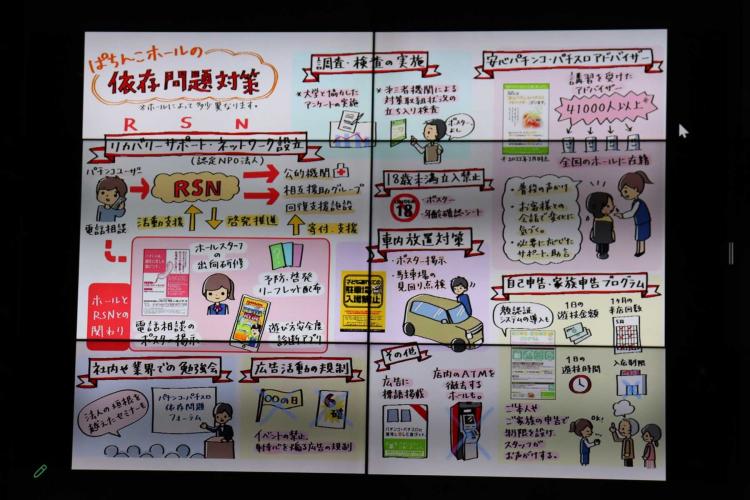 ぱちんこホールの
依存問題対策
※ホールによって多少異なります。
調査・検査の実施
*大学と協力した
アンケートの実施
*第三者機関による
対策取組状況の
立ち入り検査
ポスター
よし
安心パチンコ・パチスロアドバイザー
講習を受けた
アドバイザー
41000人以上
全国のホールに在籍
・普段の声かけ
・お客様との
会話で変化に
気づく
・必要に応じた
サポート、助言
R S N
リカバリーサポート・ネットワーク設立
(認定NPO法人)
パチンコユーザー
電話相談
RSN
公的機関
相互援助グループ
回復支援施設
活動支援
啓発推進
寄付・支援
ホールと
RSNとの
関わり
ホールスタッフ
の
出向研修
予防・啓発
リーフレット配布
電話相談の
ポスター掲示
遊び方安全度
診断アプリ
18歳未満立入禁止
18
・ポスター
・年齢確認シート
車内放置対策
・ポスター掲示
・駐車場の
見回り点検
自己申告・家族申告プログラム
顔認証
システムの導入も
1日の
遊技金額
1ヶ月の
来店回数
1日の
遊技時間
入店制限
ご本人や
ご家族の申告で
制限を設け、
スタッフが
お声がけする。
OK!
社内や業界での勉強会
法人の垣根を
越えたセミナーも
パチンコ・パチスロ
依存問題
フォーラム
広告活動の規制
〇〇の日
イベントの禁止、
射幸心を煽る広告の規制
その他
広告に
標語掲載
店内のATMを
撤去する
ホールも。